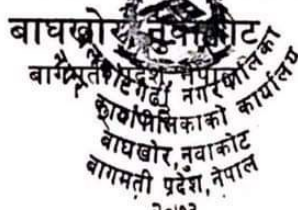 बाघखोर, नुवाकोट
बागमती प्रदेश, नेपाल
नगरपालिका
कार्यपालिकाको कार्यालय
बाघखोर, नुवाकोट
बागमती प्रदेश, नेपाल
२०७३